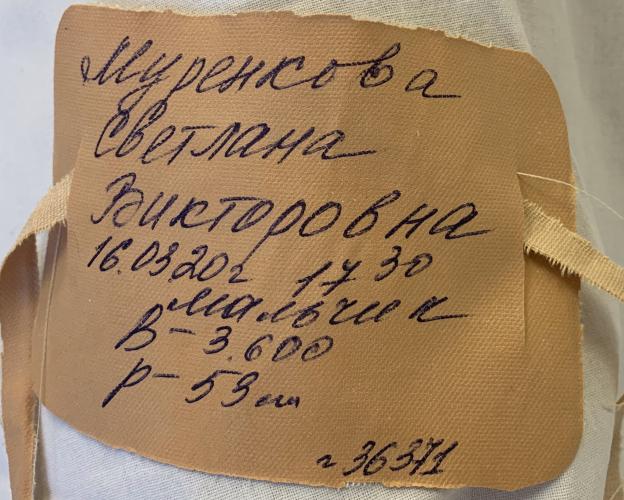 Муренкова
Светлана
Викторовна
16.03.20г 17 30
мальчик
В-3.600
р-53см
г 36371